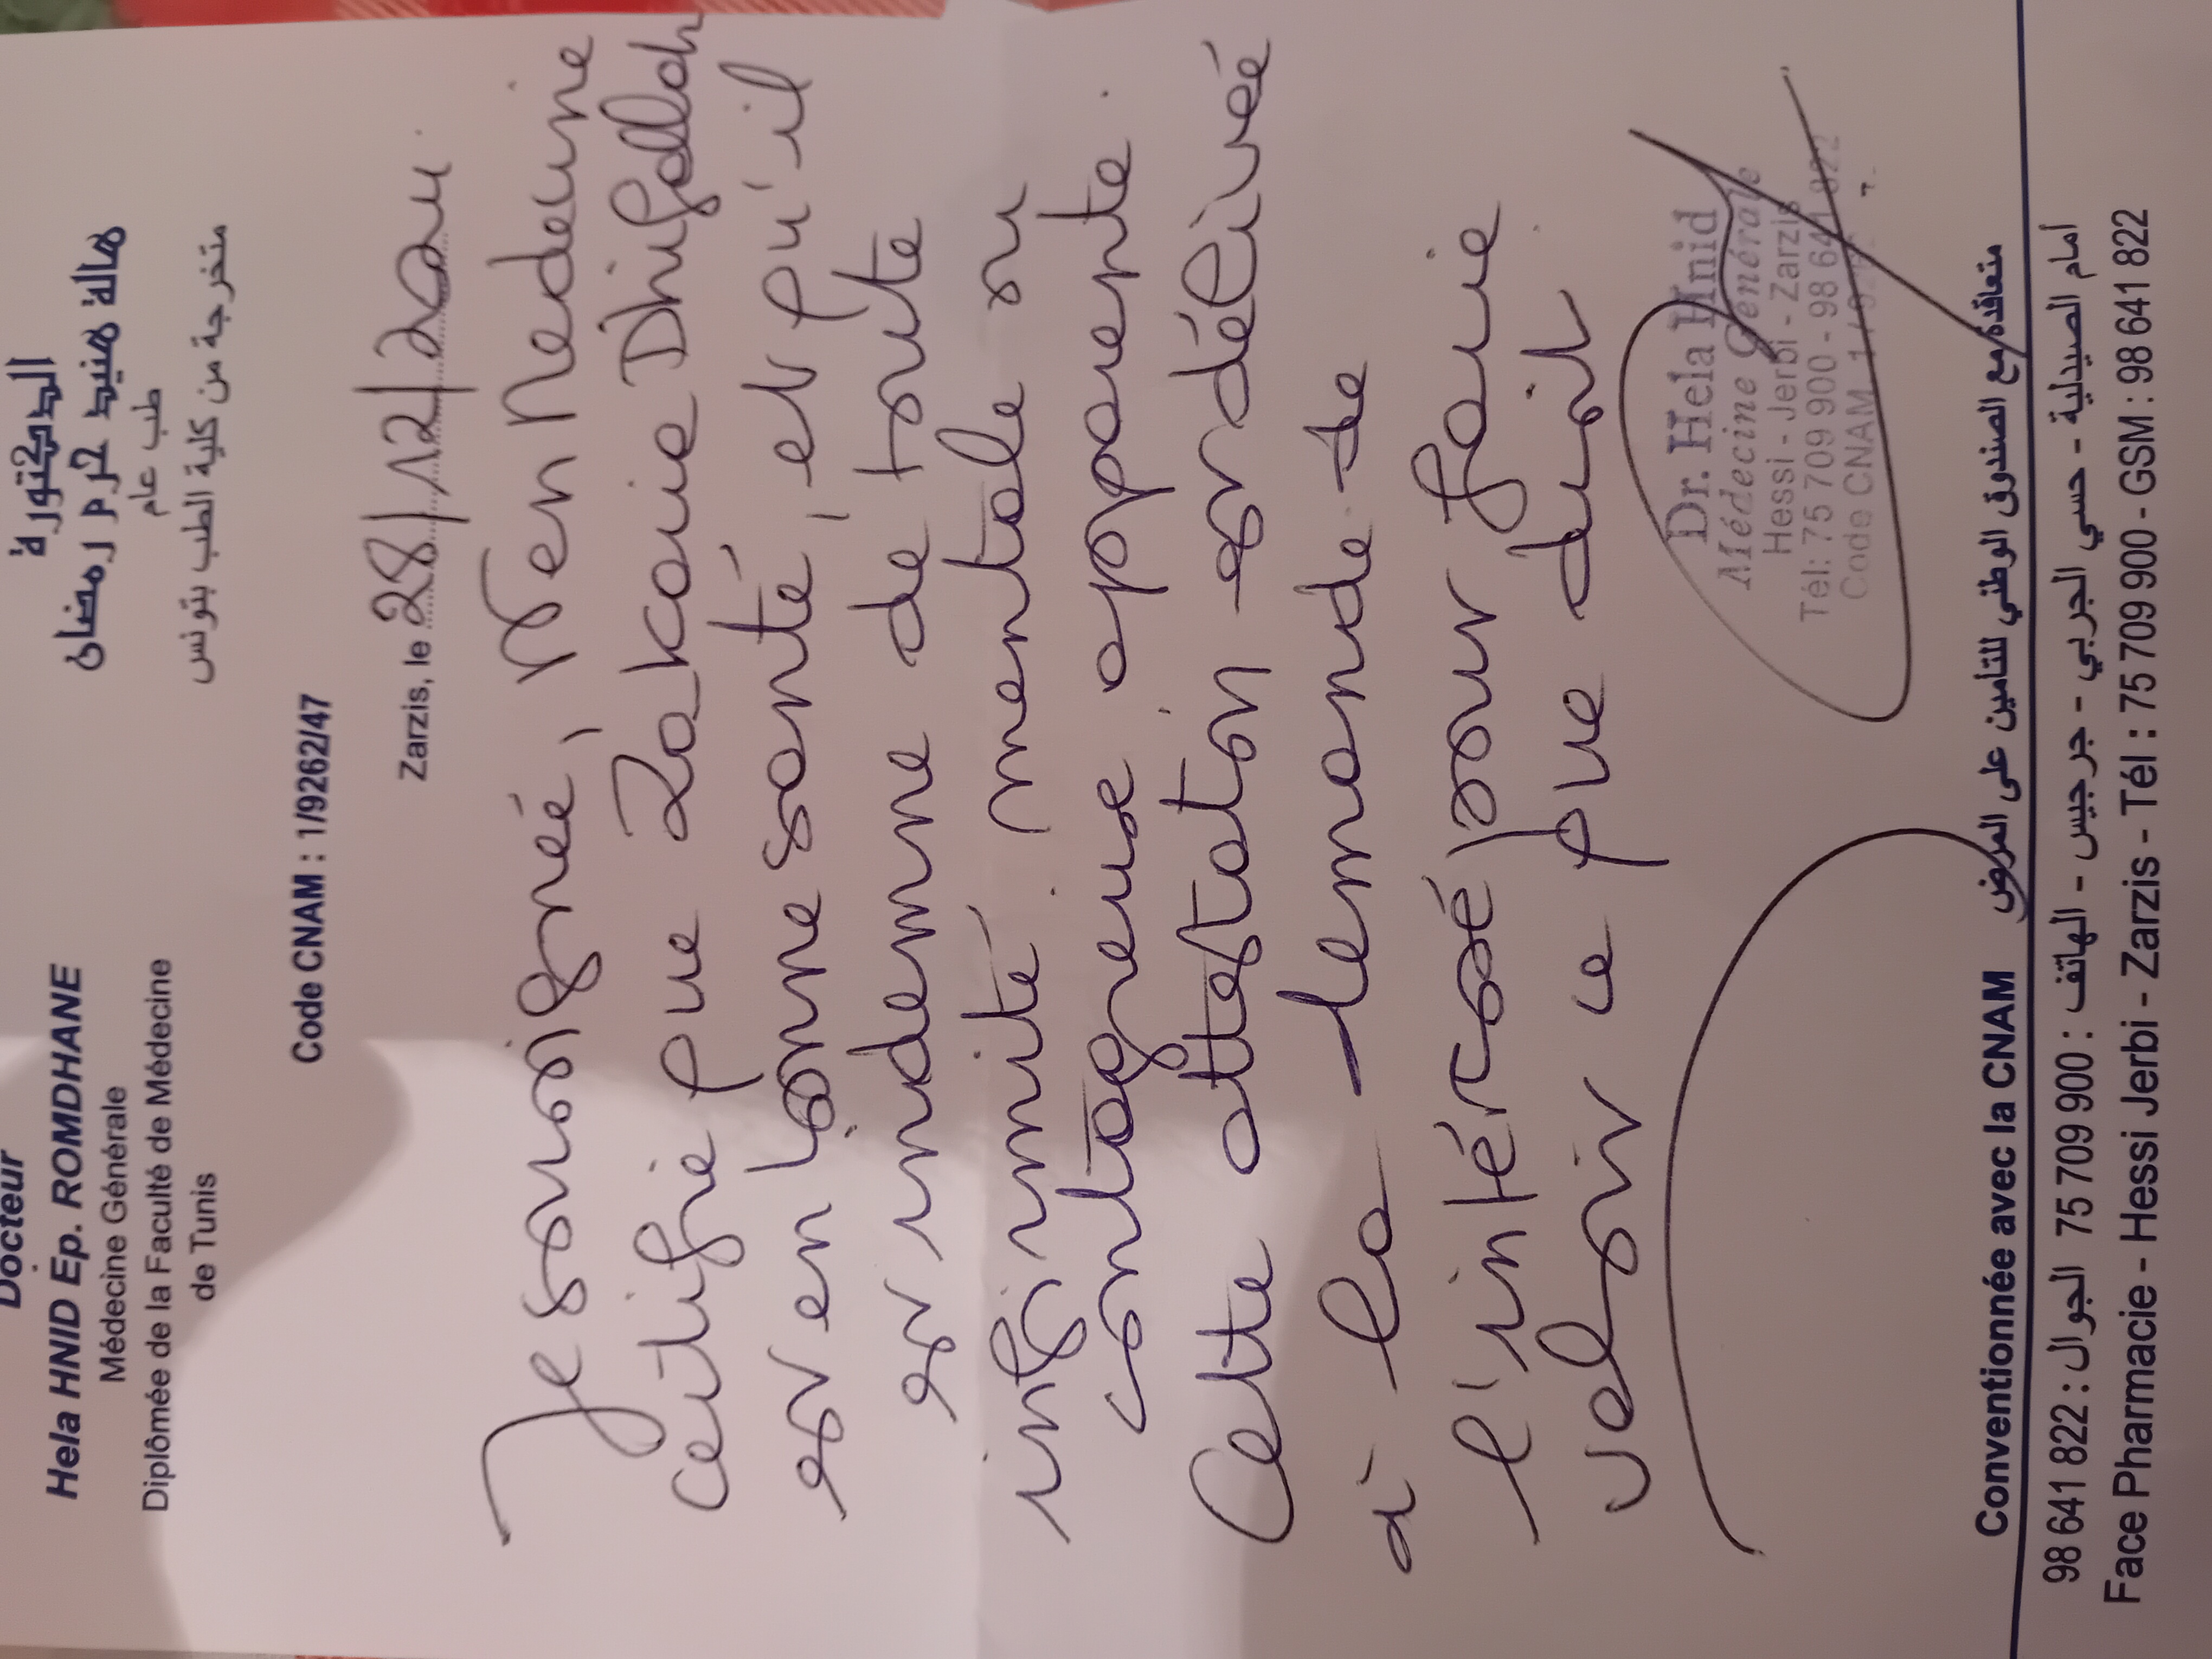 Docteur
Hela HNID Ep. ROMDHANE
Médecine Générale
Diplômée de la Faculté de Médecine
de Tunis
الدكتورة
هالة هنيد حرم رمضان
طب عام
متخرجة من كلية الطب بتونس
Code CNAM : 1/9262/47
Zarzis, le 28/12/20
Je soussignée, en Medecine
certifie que Zakarie Dhifallah
est en bonne santé, et qu'il
est indemne de toute
infirmité mentale ou
contagieuse apparente.
Cette attestation est délivrée
à la demande de
l'intéressé pour faire
valoir ce que droit
Dr. Hela Hnid
Médecine Générale
Hessi - Jerbi - Zarzis
Tél: 75 709 900 - 98 641 822
Code CNAM
Conventionnée avec la CNAM متعاقدة مع الصندوق الوطني للتأمين على المرض
أمام الصيدلية - حسي الجربي - جرجيس - الهاتف : 75 709 900 الجوال : 98 641 822
Face Pharmacie - Hessi Jerbi - Zarzis - Tél : 75 709 900 - GSM : 98 641 822